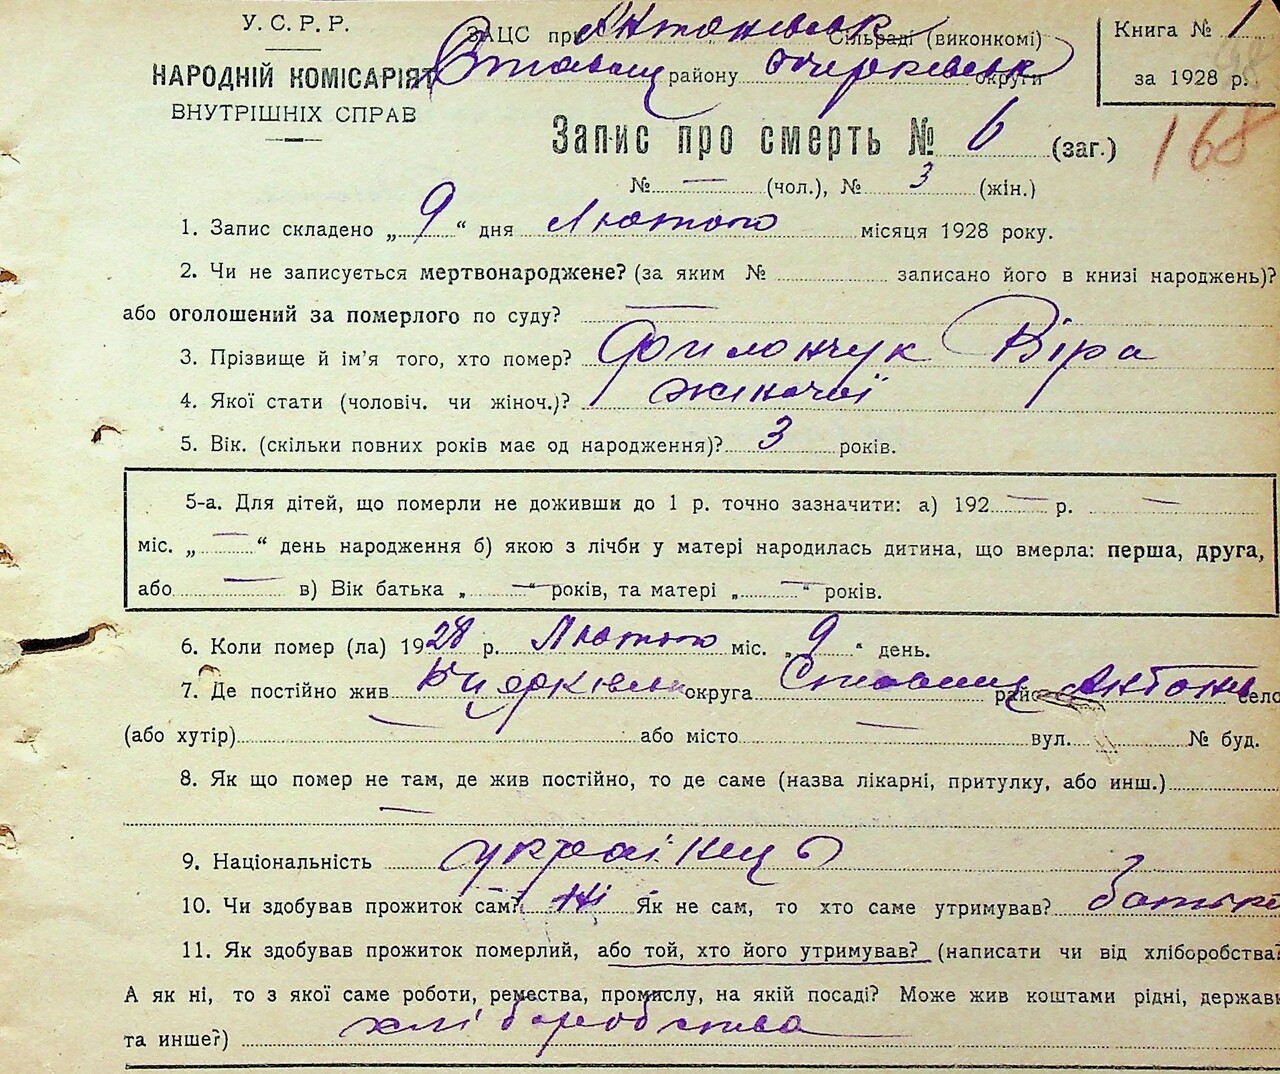 У. С. Р. Р.
НАРОДНІЙ КОМІСАРІЯТ
ВНУТРІШНІХ СПРАВ
ЗАЦС при Антонівськ Сільраді (виконкомі)
Ставищ району Б.Церківськ округи
Книга № 1
за 1928 р.
98
168
Запис про смерть № 6 (заг.)
№ — (чол.), № 3 (жін.)
1. Запис складено „ 9 “ дня Лютого місяця 1928 року.
2. Чи не записується мертвонароджене? (за яким № записано його в книзі народжень)?
або оголошений за померлого по суду? —
3. Прізвище й ім'я того, хто помер? Філончук Віра
4. Якої стати (чоловіч. чи жіноч.)? жіночої
5. Вік. (скільки повних років має од народження)? 3 років.
5-а. Для дітей, що померли не доживши до 1 р. точно зазначити: а) 192 — р. —
міс. „ — “ день народження б) якою з лічби у матері народилась дитина, що вмерла: перша, друга,
або — в) Вік батька „ — “ років, та матері „ — “ років.
6. Коли помер (ла) 1928 р. Лютого міс. „ 9 “ день.
7. Де постійно жив Б Церківськ округа Ставищ район Антонів село
(або хутір) — або місто — вул. № буд.
8. Як що помер не там, де жив постійно, то де саме (назва лікарні, притулку, або инш.)
—
9. Національність українць
10. Чи здобував прожиток сам? Ні Як не сам, то хто саме утримував? батько
11. Як здобував прожиток померлий, або той, хто його утримував? (написати чи від хліборобства?
А як ні, то з якої саме роботи, ремества, промислу, на якій посаді? Може жив коштами рідні, держави
та инше?) хліборобства